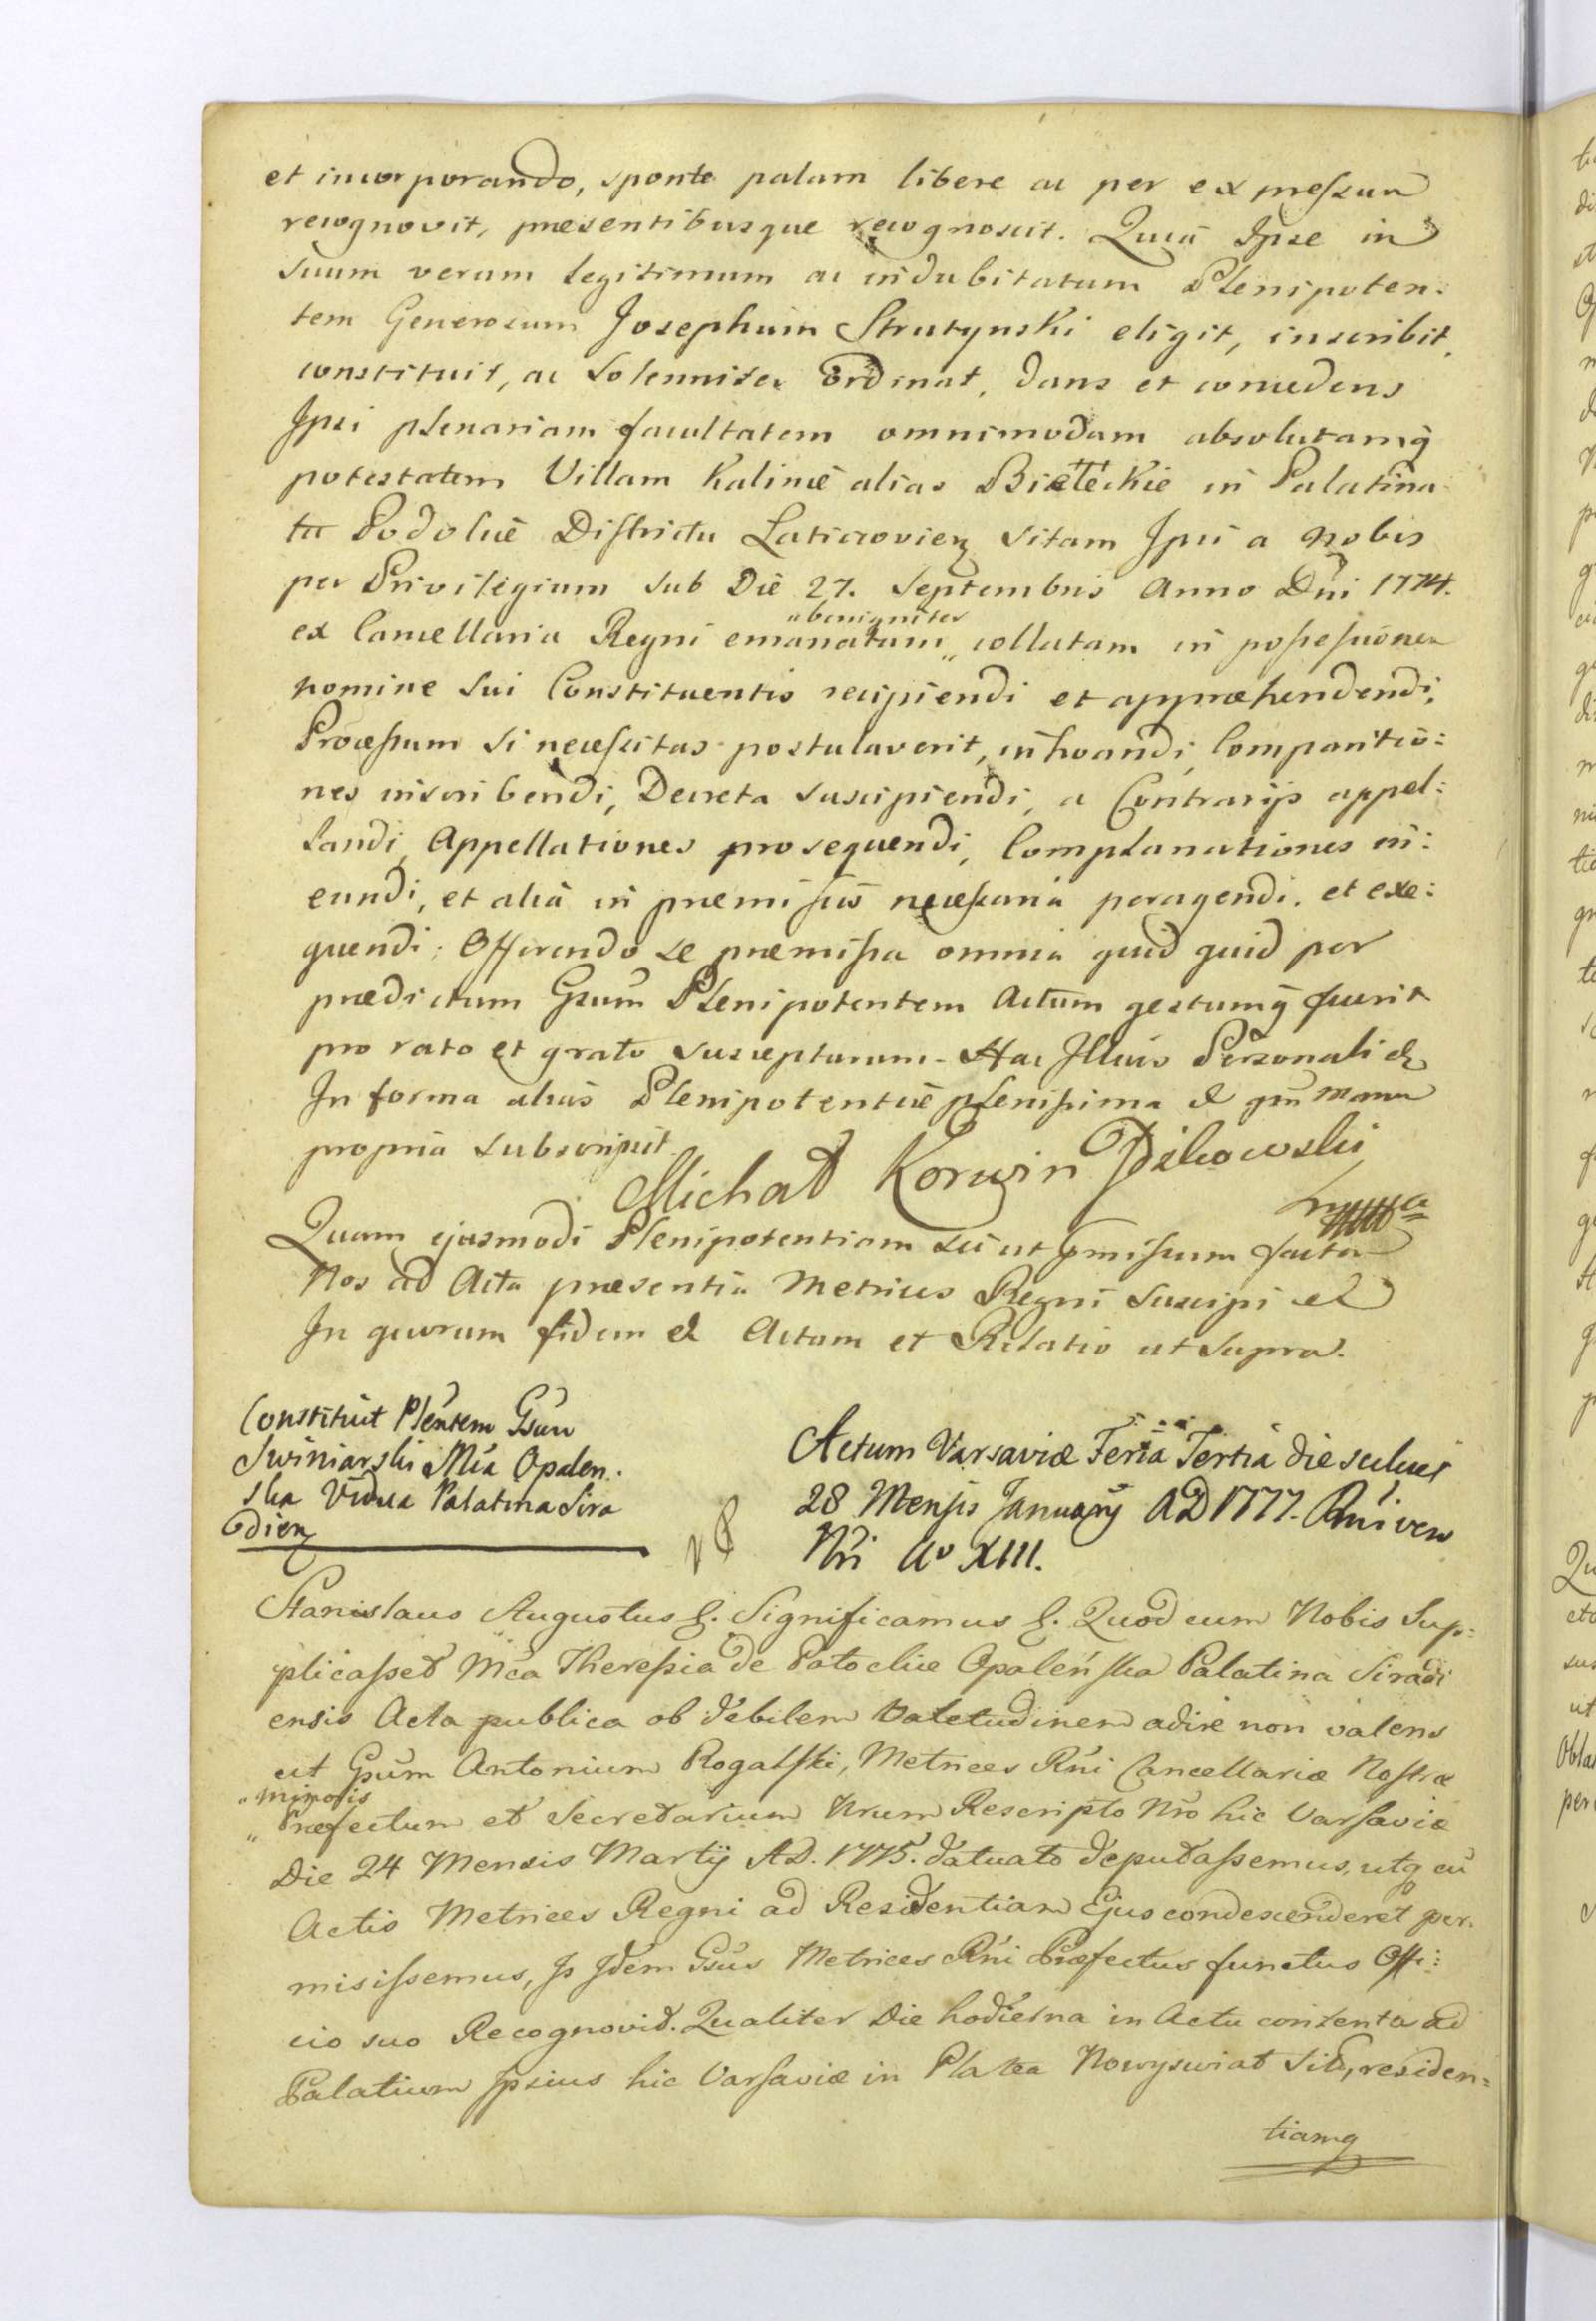 et incorporando, sponte palam libere ac per expressum
recognovit, præsentibusque recognoscit. Quia Ipse in
suum verum legitimum ac indubitatum Plenipoten:
tem Generosum Josephum Strutynski eligit, inscribit,
constituit, ac Solenniter ordinat, dans et concedens
Ipsi plenariam facultatem omnimodam absolutamq̃
potestatem Villam Kalinie alias Bileckie in Palatina
tu Podoliæ Districtu Laticzovien sitam Ipsi a Nobis
per Privilegium sub Die 27. Septembris Anno Dni 1774.
„benigniter
ex Cancellaria Regni emanatum „ collatam in possessionem
nomine sui Constituentis recipiendi et appræhendendi,
Processum si necessitas postulaverit, inchoandi, Comparitio:
nes inscribendi, Decreta suscipiendi, a Contrarijs appel:
landi, Appellationes prosequendi, Complanationes in:
eundi, et alia in præmissis necessaria peragendi. et exe:
quendi; Offerendo se præmissa omnia quid quid per
prædictum Gsum Plenipotentem Actum gestumq̃ fuerit
pro rato et grato suscepturum. Hac Illius Personali &
In forma alias Plenipotentiæ plenissima & qm manu
propria subscripsit.
Michał Korwin
Quam ejusmodi Plenipotentiam sic ut pmissum factam
Nos ad Acta præsentia Metrices Regni suscipi &
In quorum fidem & Actum et Relatio ut supra.
Constituit Pleñtem Gsum
Swiniarski Mca Opalen:
ska Vidua Palatina Sira
dien
Actum Varsaviæ Feria Tertia die scilicet
28 Mensis Januarij AD 1777. Rni vero
Nri Ao XIII.
Stanislaus Augustus &. Significamus &. Quod cum Nobis Sup:
plicasset Mca Theressia de Potockie Opaleńska Palatina Siradi
ensis Acta publica ob debilem Valetudinem adire non valens
ut Gsum Antonium Rogalski, Metrices Rni Cancellariæ Nostræ
„minoris
„ Præfectum et Secretarium Nrum Rescripto Nro hic Varsaviæ
Die 24 Mensis Martij AD. 1775. datuato deputassemus, utq cũ
Actis Metrices Regni ad Residentiam Ejus condescenderet per:
misissemus, Is Idem Gsus Metrices Rni Præfectus functus Offi:
cio suo Recognovit. Qualiter Die hodierna in Actu contenta ad
Palatium Ipsius hic Varsaviæ in Platea Nowyswiat Sit, residen=
tiamq